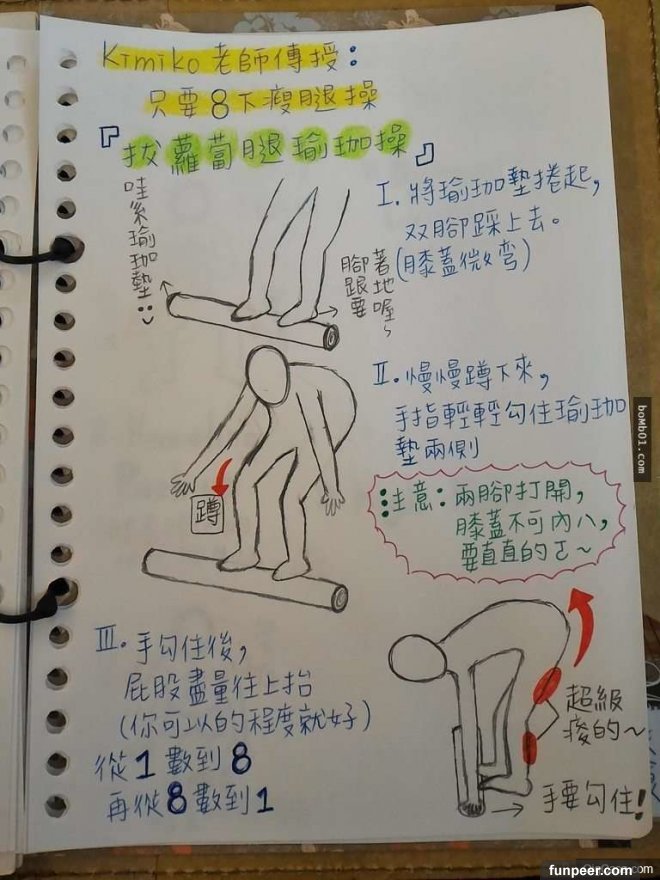 Kimiko老師傳授:
只要8下瘦腿操
『拔蘿蔔腿瑜珈操』
哇系瑜珈墊
I. 將瑜珈墊捲起,
双腳踩上去。
(膝蓋微彎)
腳跟要
著地喔~
II. 慢慢蹲下來,
手指輕輕勾住瑜珈
墊兩側
蹲
注意: 兩腳打開,
膝蓋不可內八,
要直直的ㄛ~
III. 手勾住後,
屁股盡量往上抬
(你可以的程度就好)
從1數到8
再從8數到1
超級
痠的~
手要勾住!
boMb01.com
funpeer.com